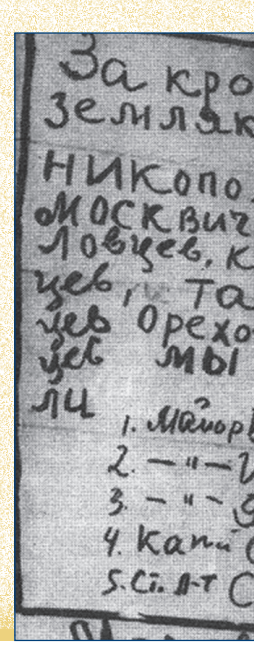 За кро
земляк
никопо
москвич
ловцев, к
цев, та
цев Орехо
цев мы
ли
1. Майор
2. — " —
3. — " —
4. Капи
5. Ст. л-т С